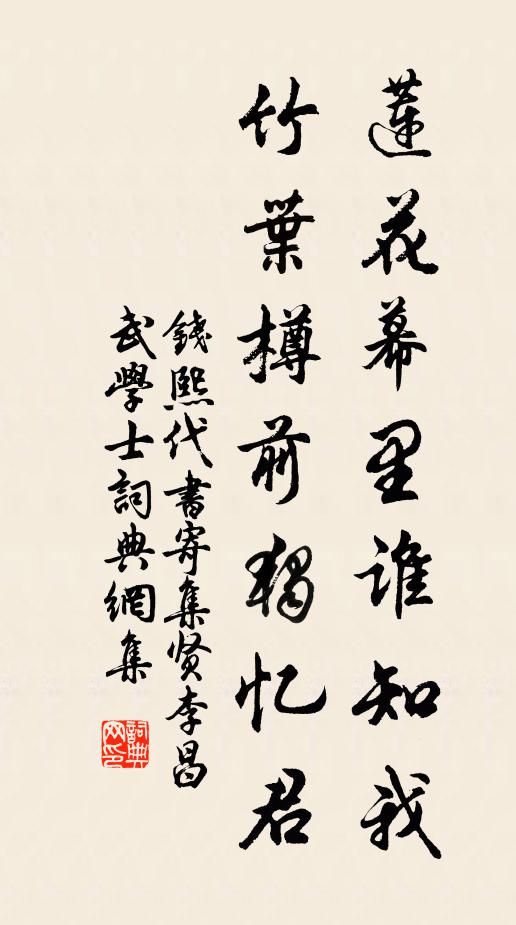 蓮花幕里谁知我
竹葉樽前独忆君
錢熙代書寄集贤李昌
武學士詞典網集
詞典
网印